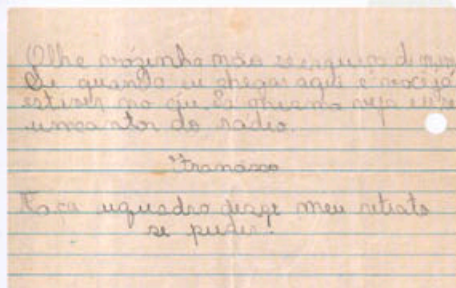 Olhe vózinha não se esqueça de mim
Se quando eu chegar aqui e você já
estiver no céu lá mesmo veja eu ser
um cantor do radio.
"Francisco
Faça quadro meu retrato
se puder!